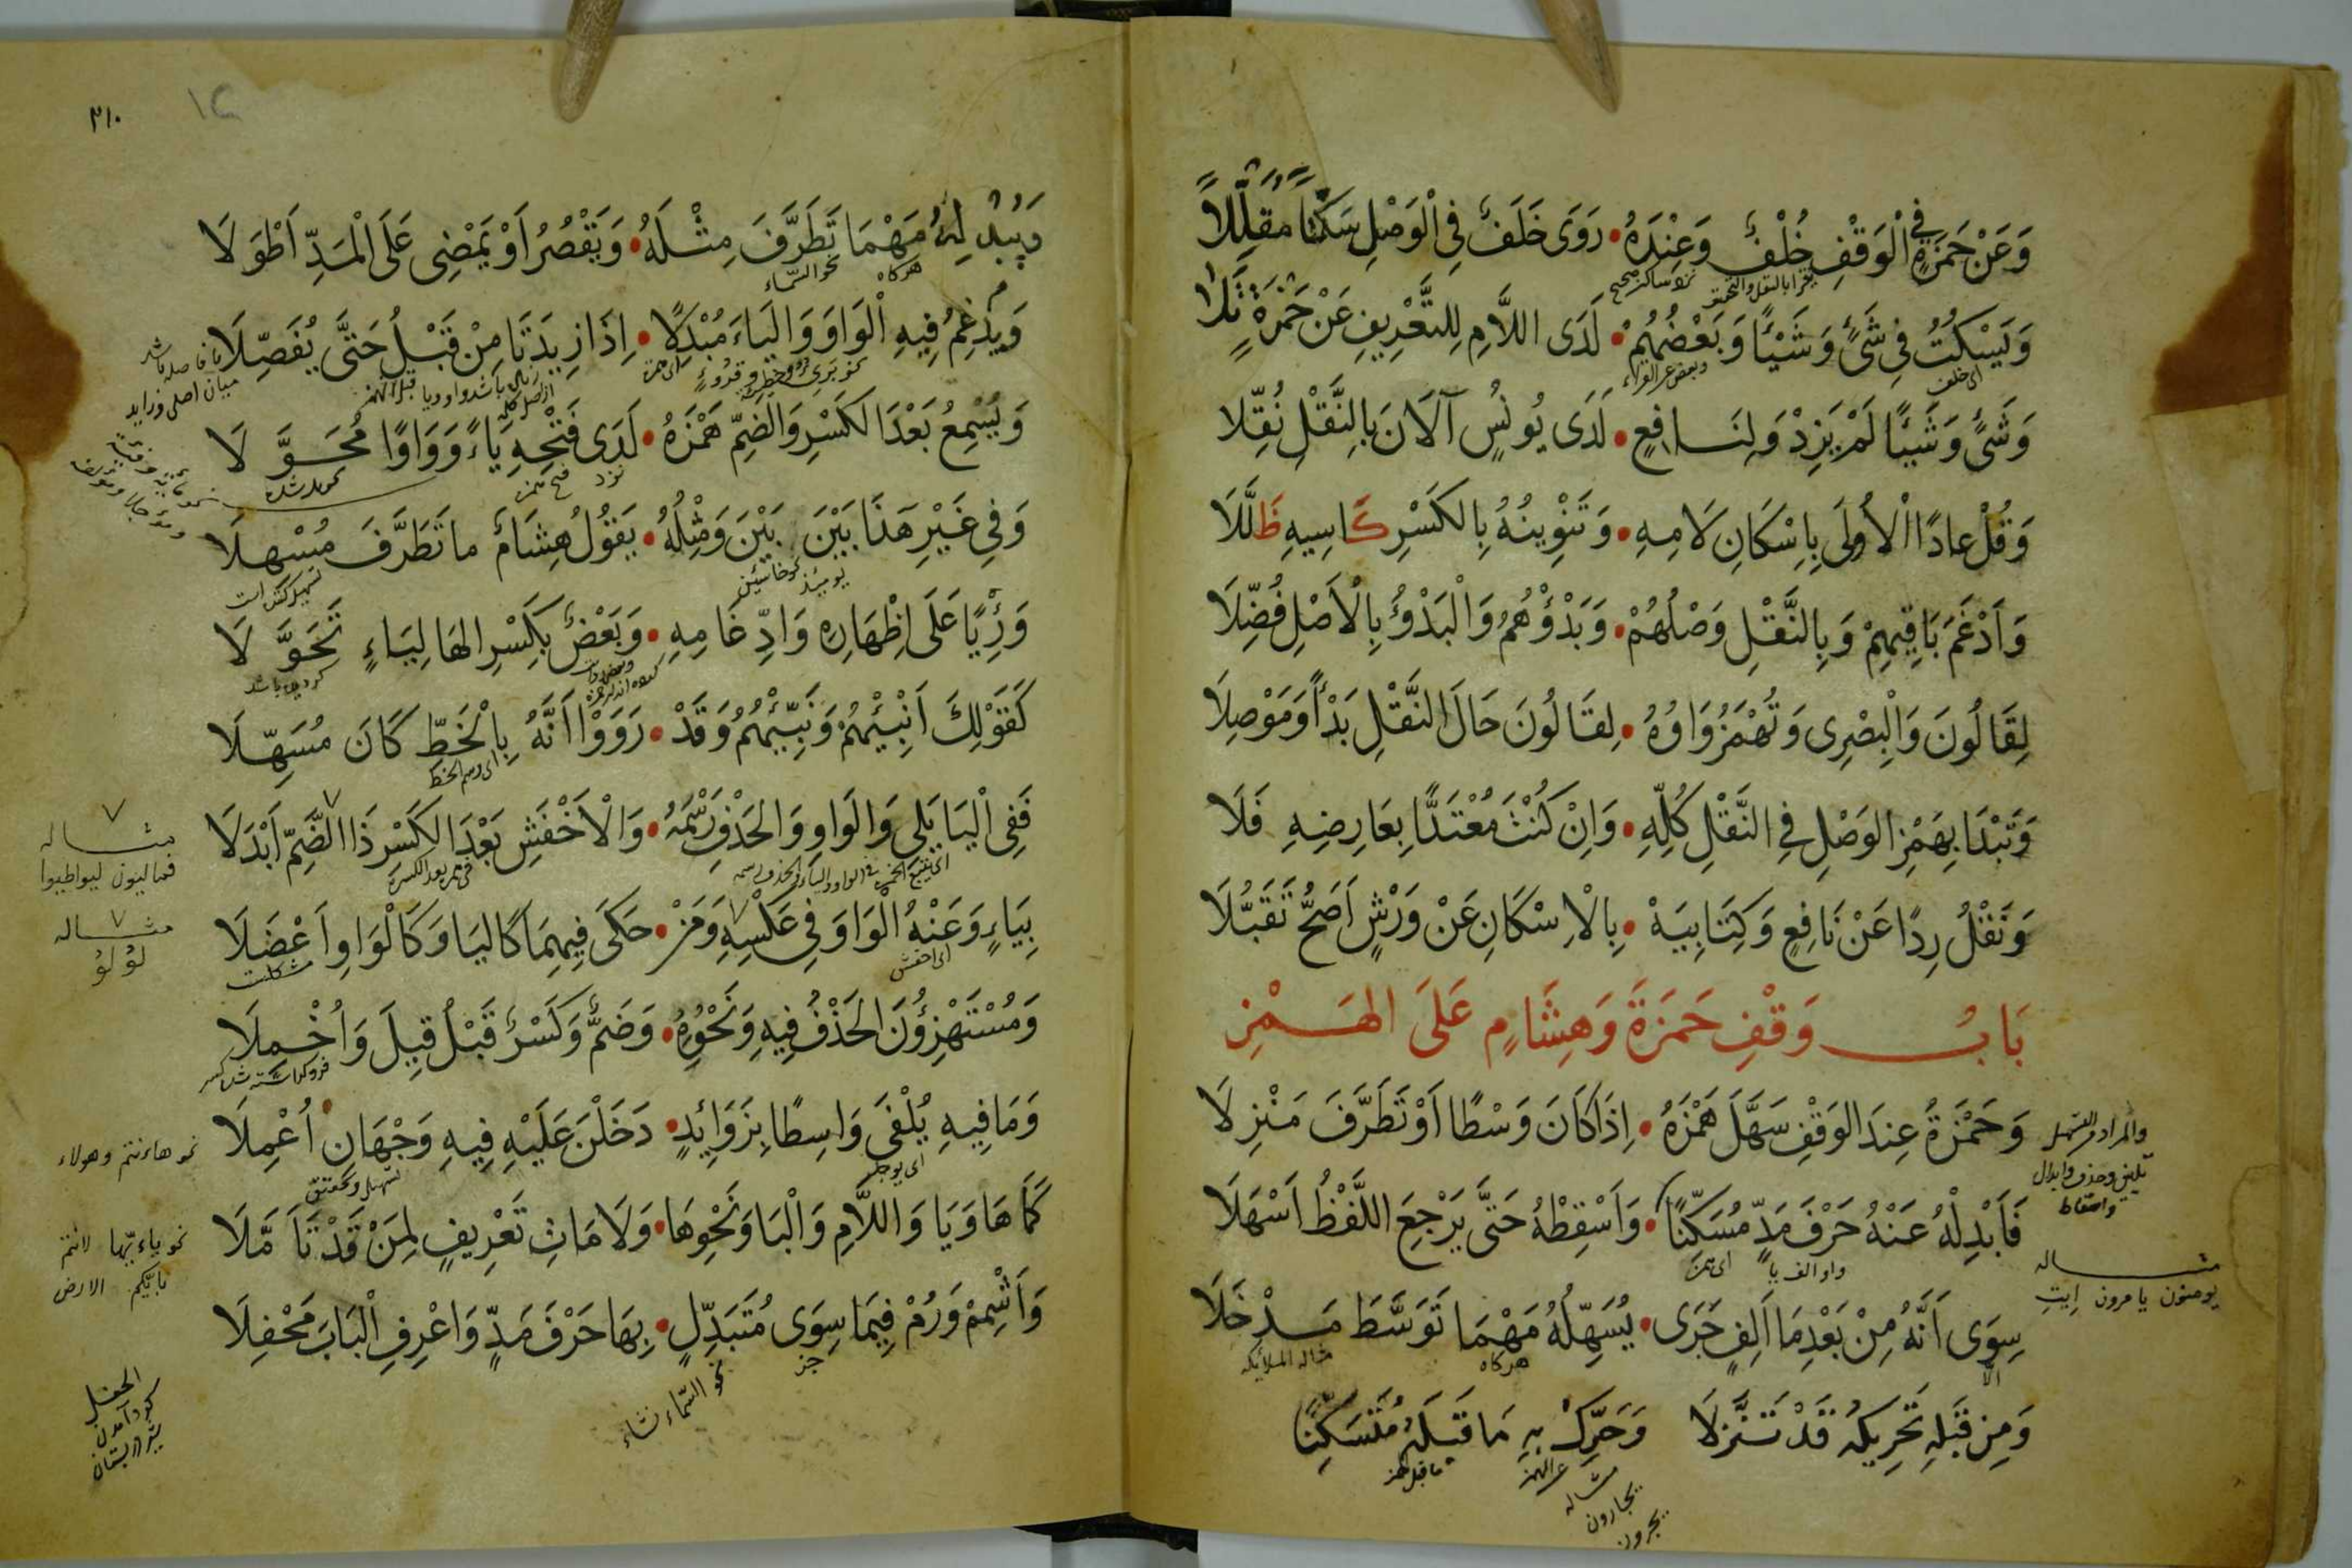 وَعَنْ حَمْزَةٍ فِي الْوَقْفِ خُلْفٌ وَعِنْدَهُ • رَوَى خَلَفٌ فِي الْوَصْلِ سَكْتًا مُقَلَّلًا
وَيَسْكُتُ فِي شَيْءٍ وَشَيْئًا وَبَعْضُهُمْ • لَدَى اللَّامِ لِلتَّعْرِيفِ عَنْ حَمْزَةٍ تَلَا
اى خلف
وَشَيْءٍ وَشَيْئًا لَمْ يَزِدْ وَلِنَافِعٍ • لَدَى يُونُسٍ آلَانَ بِالنَّقْلِ نُقِّلَا
وَقُلْ عَادًا الْأُولَى بِإِسْكَانِ لَامِهِ • وَتَنْوِينُهُ بِالْكَسْرِ كَاسِيهِ ظَلَّلَا
وَأَدْغَمَ بَاقِيهِمْ وَبِالنَّقْلِ وَصْلُهُمْ • وَبَدْؤُهُمُ وَالْبَدْؤُ بِالْأَصْلِ فُضِّلَا
لِقَالُونَ وَالْبِصْرِى وَتُهْمَزُ وَاوُهُ • لِقَالُونَ حَالَ النَّقْلِ بَدْأً وَمَوْصِلَا
وَتَبْدَا بِهَمْزِ الوَصْلِ فِي النَّقْلِ كُلِّهِ • وَاِنْ كُنْتَ مُعْتَدًّا بِعَارِضِهِ فَلَا
وَنَقْلُ رِدًا عَنْ نَافِعٍ وَكِتَابِيَهْ • بِالْاِسْكَانِ عَنْ وَرْشٍ اَصَحُّ تَقَبُّلَا
بَابُ وَقْفِ حَمْزَةَ وَهِشَامٍ عَلَى الهَمْزِ
وَحَمْزَةُ عِنْدَ الوَقْفِ سَهَّلَ هَمْزَهُ • اِذَا كَانَ وَسْطًا اَوْ تَطَرَّفَ مَنْزِلَا
فَاَبْدِلْهُ عَنْهُ حَرْفَ مَدٍّ مُسَكَّنًا • وَاَسْقِطْهُ حَتَّى يَرْجِعَ اللَّفْظُ اَسْهَلَا
واو الف يا
مثاله
يومنون يامرون إيت
سِوَى اَنَّهُ مِنْ بَعْدِ مَا اَلِفٍ جَرَى • يُسَهِّلُهُ مَهْمَا تَوَسَّطَ مَدْخَلَا
هركاه
مثاله الملائكه
وَمِن قَبْلِهِ تَحْرِيكُهُ قَدْ تَنَزَّلَا وَحَرِّكْ بِهِ مَا قَبْلَهُ مُتَسَكِّنًا
مثاله
يجارون
٣١٠
وَيُبْدِلُهُ مَهْمَا تَطَرَّفَ مِثْلَهُ • وَيَقْصُرُ اَوْ يَمْضِى عَلَى الْمَدِّ اَطْوَلَا
هركاه
نحو السّماء
وَيُدْغِمُ فِيهِ الْوَاوَ وَالْيَاءَ مُبْدِلًا • اِذَا زِيدَتَا مِنْ قَبْلُ حَتَّى يُفَصِّلَا
وَيُسْمِعُ بَعْدَ الكَسْرِ وَالضَّمِّ هَمْزَهُ • لَدَى فَتْحِهِ يَاءً وَوَاوًا مُحَوَّلَا
وَفِي غَيْرِ هَذَا بَيْنَ بَيْنَ وَمِثْلُهُ • يَقُولُ هِشَامٌ مَا تَطَرَّفَ مُسْهِلَا
وَرِئْيًا عَلَى اِظْهَارِهِ وَادِّغَامِهِ • وَبَعْضٌ بِكَسْرِ الهَا لِيَاءٍ تَحَوَّلَا
كَقَوْلِكَ اَنْبِئْهُمْ وَنَبِّئْهُمُ وَقَدْ • رَوَوْا اَنَّهُ بِالْخَطِّ كَانَ مُسَهِّلَا
اى رسم الخط
فَفِي الْيَا يَلِى وَالْوَاوِ وَالْحَذْفِ رَسْمَهُ • وَالْاَخْفَشِ بَعْدَ الكَسْرِ ذَا الضَّمِّ اَبْدَلَا
مثاله
بِيَاءٍ وَعَنْهُ الْوَاوَ فِي عَكْسِهِ وَمَنْ • حَكَى فِيهِمَا كَالْيَا وَكَالْوَاوِ اَعْضَلَا
اى اخفش
مثاله
لؤلؤ
وَمُسْتَهْزِؤُنَ الحَذْفُ فِيهِ وَنَحْوُهُ • وَضَمٌّ وَكَسْرٌ قَبْلُ قِيلَ وَاُخْمِلَا
وَمَا فِيهِ يُلْفَى وَاسِطًا بِزَوَائِدٍ • دَخَلْنَ عَلَيْهِ فِيهِ وَجْهَانِ اُعْمِلَا
اى يوجد
نحو هاءنتم وهولاء
كَمَا هَا وَيَا وَاللَّامِ وَالْبَا وَنَحْوِهَا • وَلَا مَاتِ تَعْرِيفٍ لِمَنْ قَدْ تَاَمَّلَا
وَاَشْمِمْ وَرُمْ فِيمَا سِوَى مُتَبَدِّلٍ • بِهَا حَرْفَ مَدٍّ وَاعْرِفِ الْبَابَ مَحْفِلَا
نحو السّماء نشاء